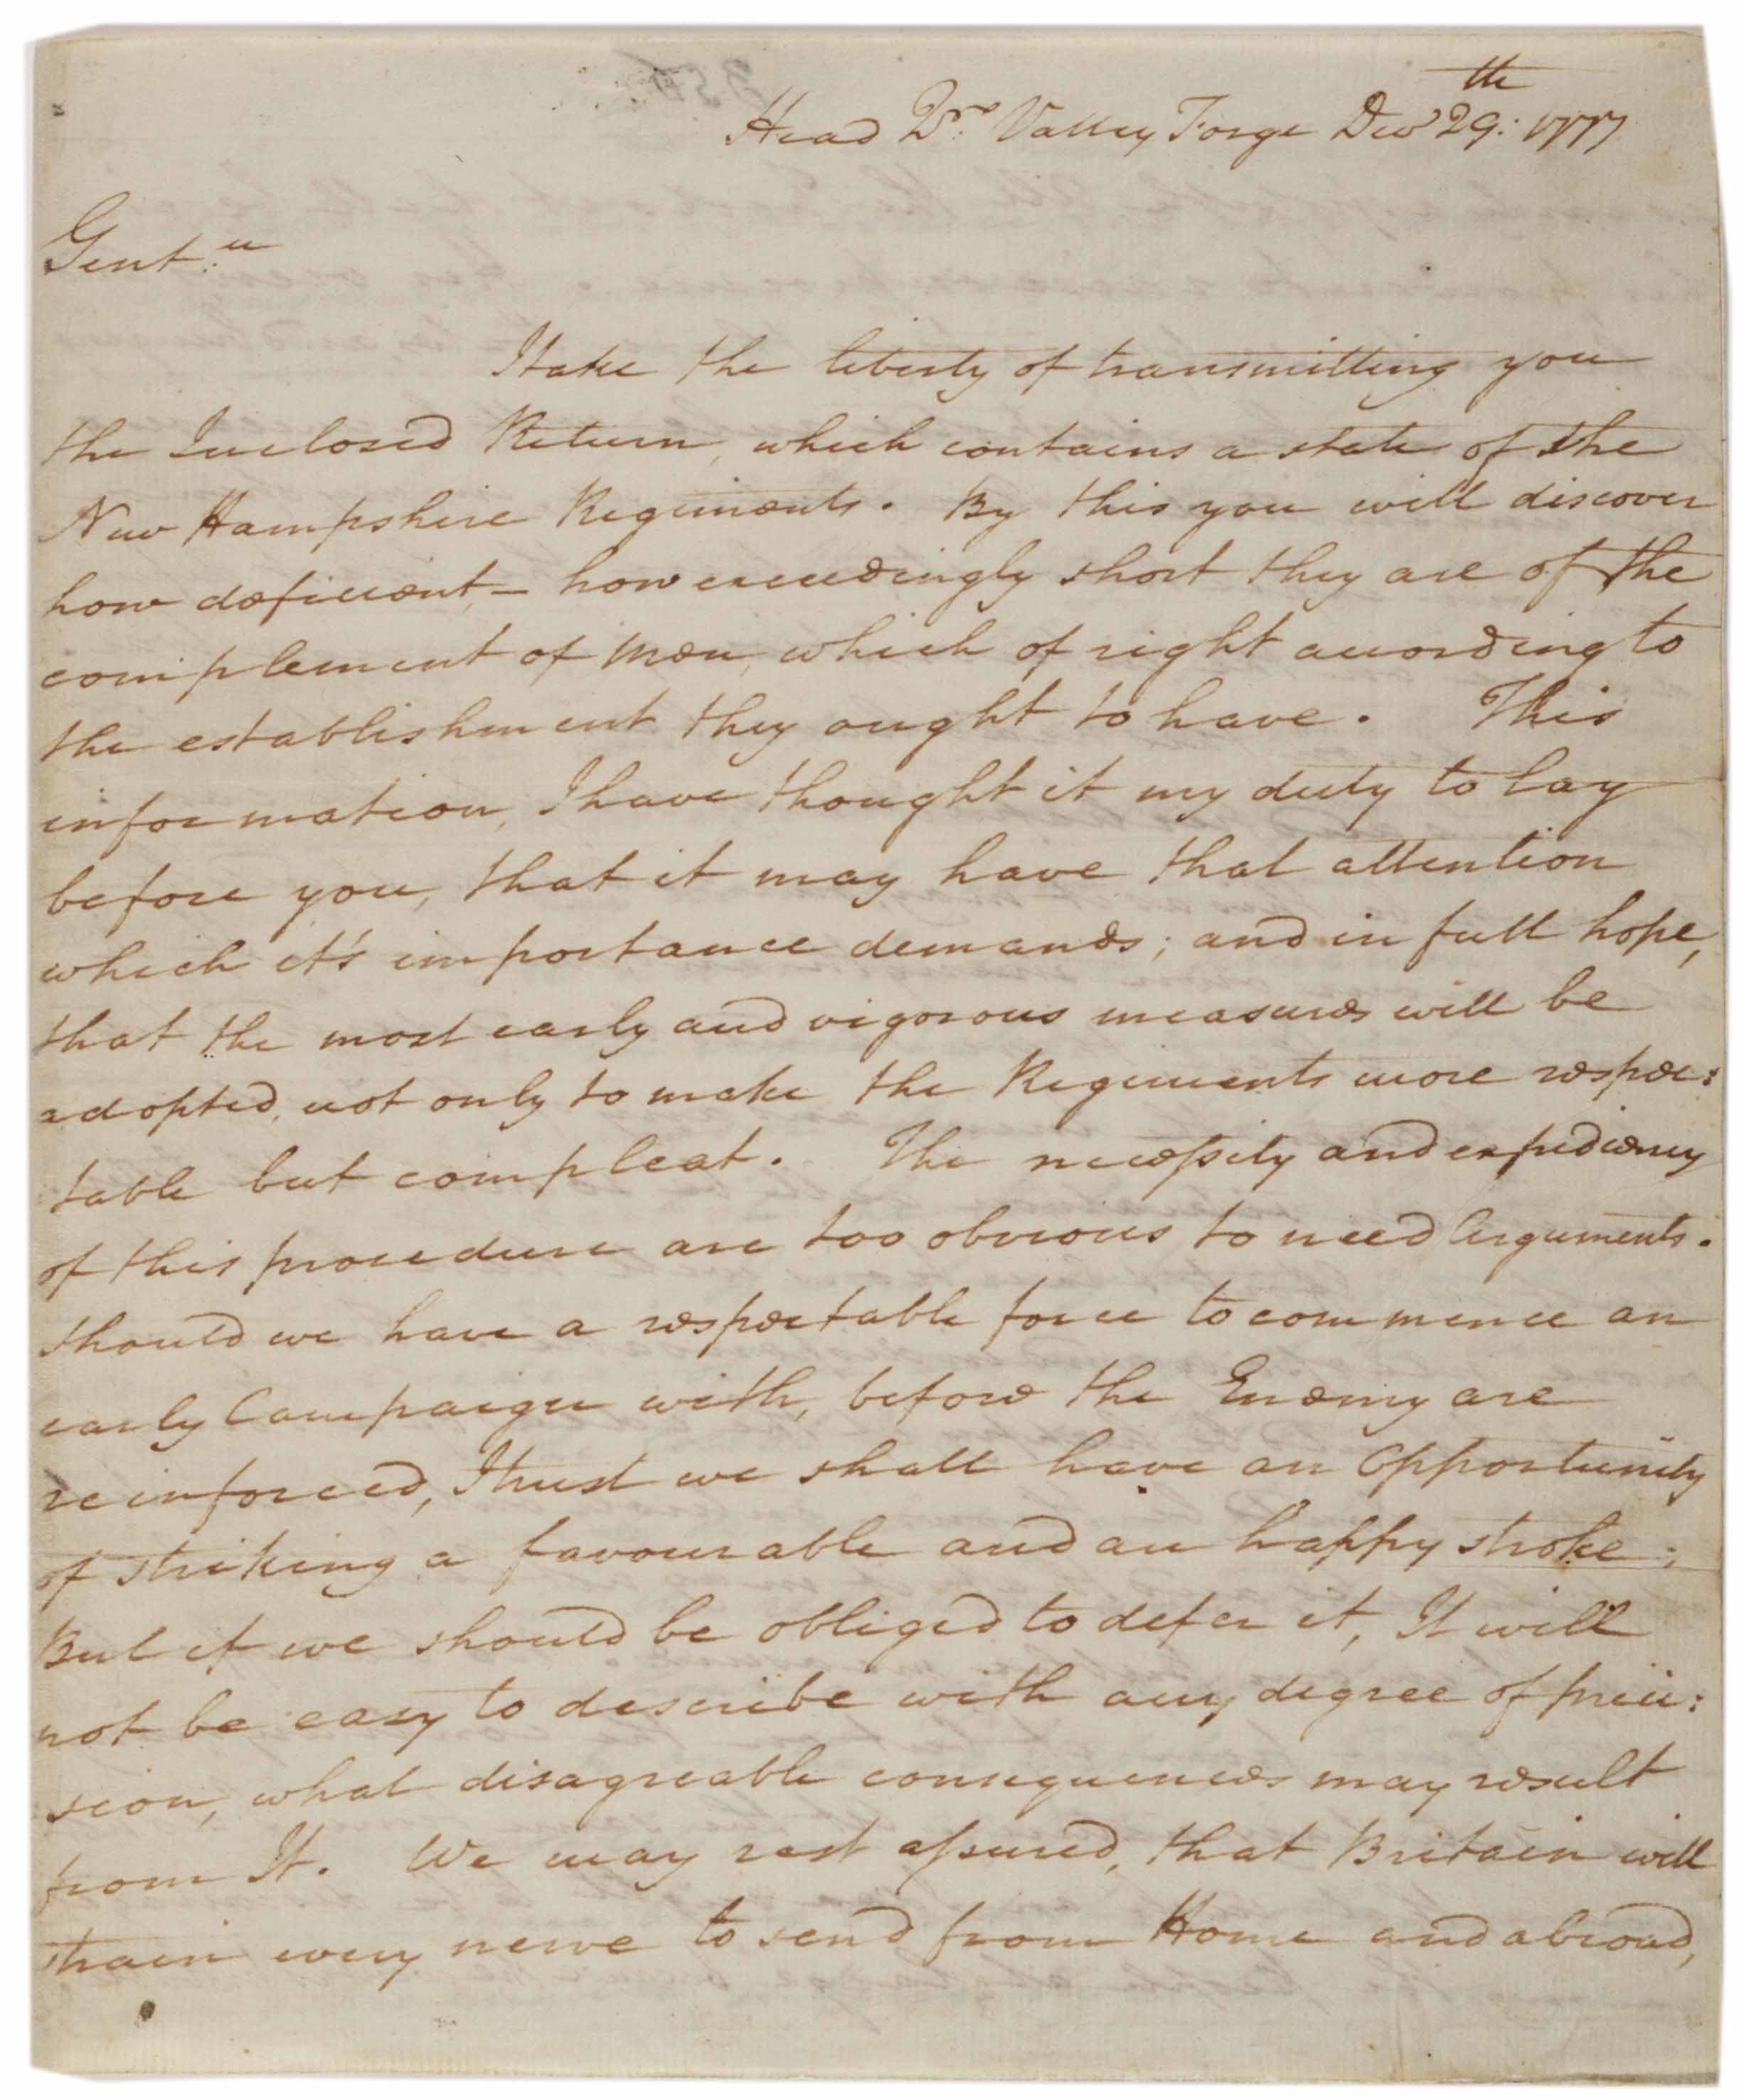 Head Qrs. Valley Forge Decr 29:th 1777
Gentn
I take the liberty of transmitting you
the Inclosed Return, which contains a state of the
New Hampshire Regiments. By this you will discover
how deficient, – how exceedingly short they are of the
complement of men, which of right according to
the establishment they ought to have. This
information, I have thought it my duty to lay
before you, that it may have that attention
which it's importance demands; and in full hope,
that the most early and vigorous measures will be
adopted, not only to make the Regiments more respec:
table but compleat. The necessity and expediency
of this procedure are too obvious to need Arguments.
Should we have a respectable force to commence an
early Campaign with, before the Enemy are
reinforced, I trust we shall have an Opportunity
of striking a favourable and an happy stroke;
But if we should be obliged to defer it, It will
not be easy to describe with any degree of preci:
sion, what disagreable consequences may result
from It. We may rest assured, that Britain will
strain every nerve to send from Home and abroad,